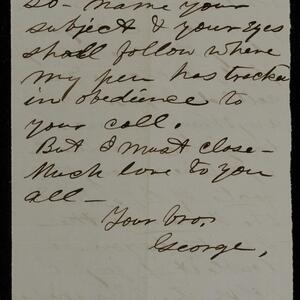 so- name your
subject & your eyes
shall follow where
my pen has tracked
in obedience to
your call.
But I must close-
Much love to you
all-
Your bro,
George,